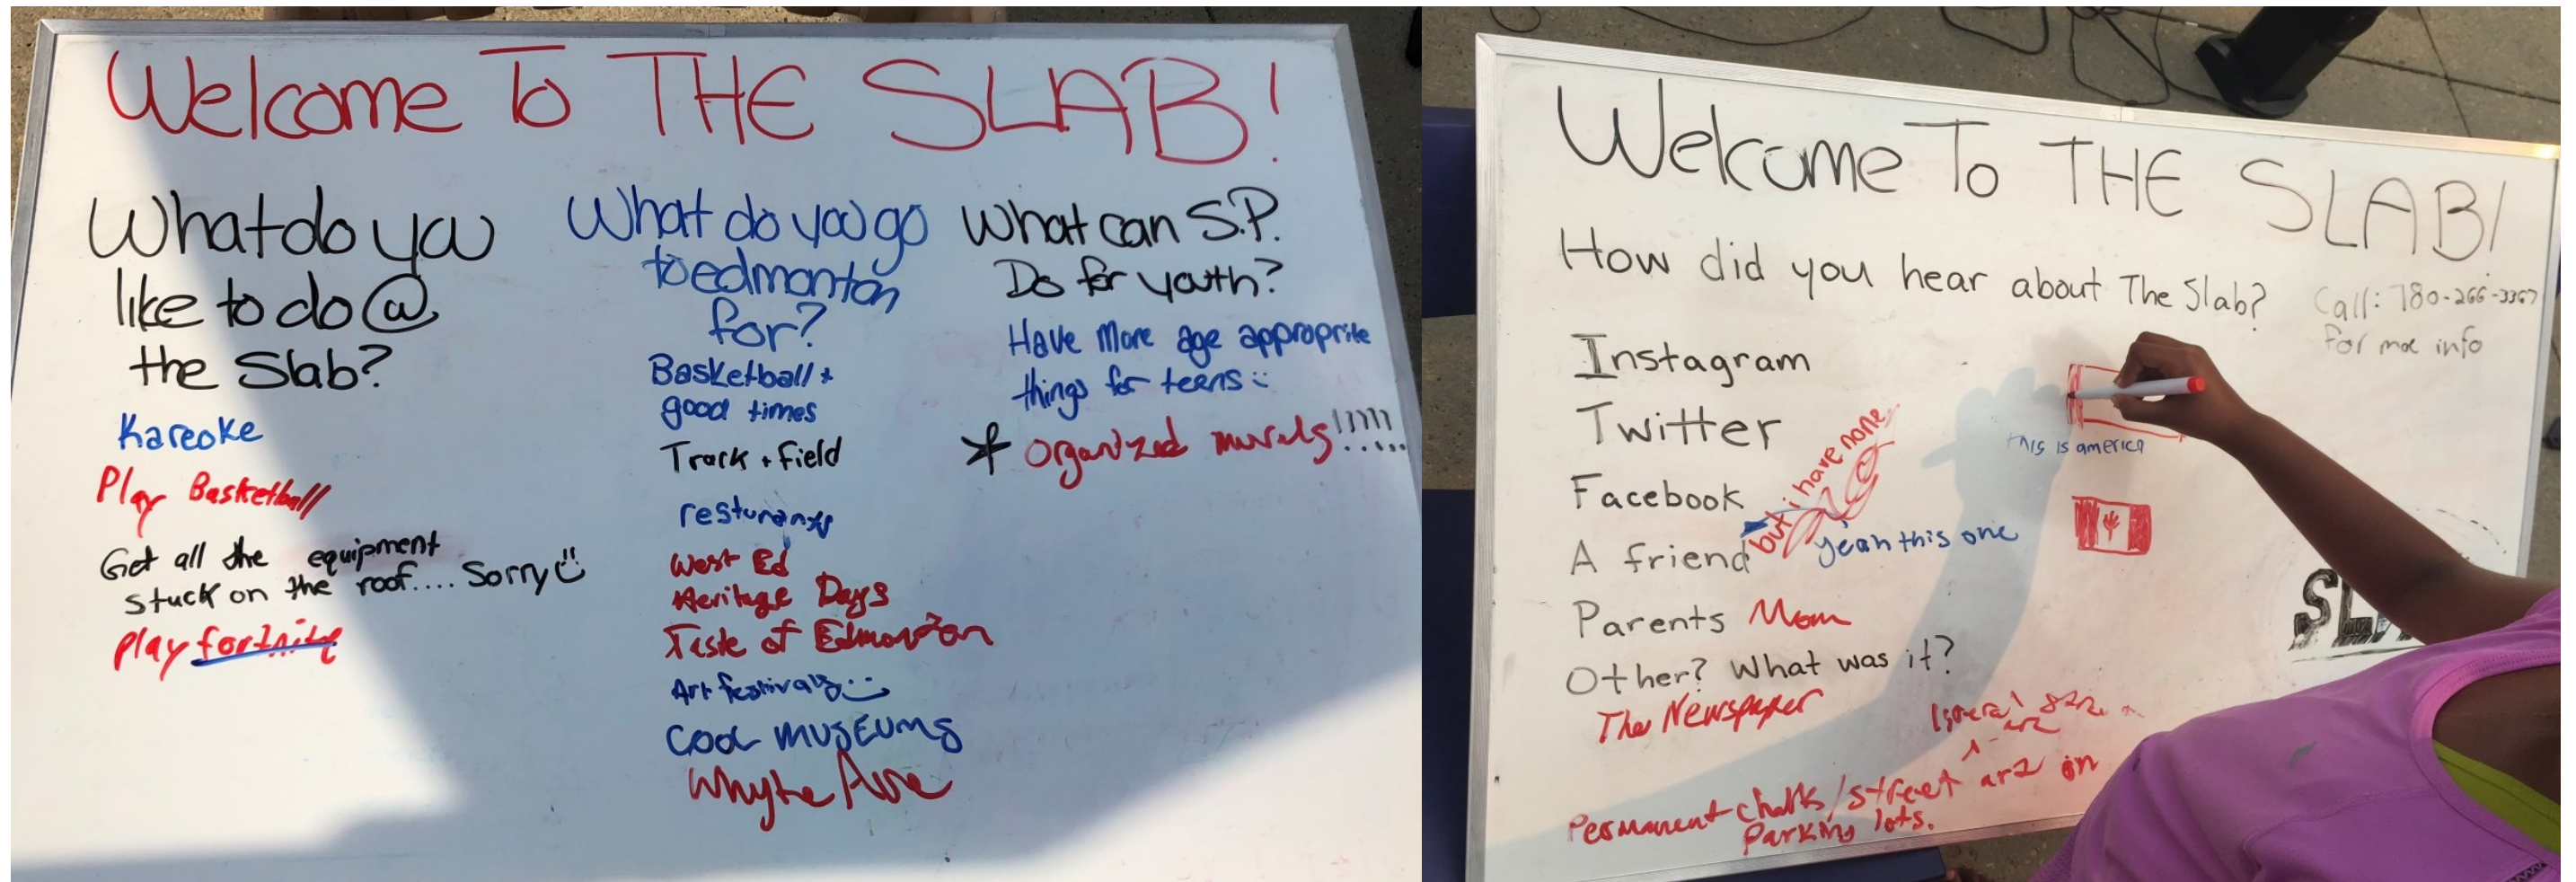 Welcome To THE SLAB!
What do you
like to do @
the Slab?
Kareoke
Play Basketball
Get all the equipment
stuck on the roof.... Sorry
play fortnite
What do you go
to edmonton
for?
Basketball +
good times
Track + field
resturants
West Ed
Heritage Days
Taste of Edmonton
Art festivals
cool musEums
Whyte Ave
What can S.P.
Do for youth?
Have More age approprite
things for teens
* organized murals!!!!!
Welcome To THE SLAB!
How did you hear about The Slab?
Call: 780-266-3367
for more info
Instagram
Twitter
Facebook
A friend
but i have none
yeah this one
Parents Mom
Other? What was it?
The Newspaper
this is america
Permanent chalks/street art on
Parking lots.